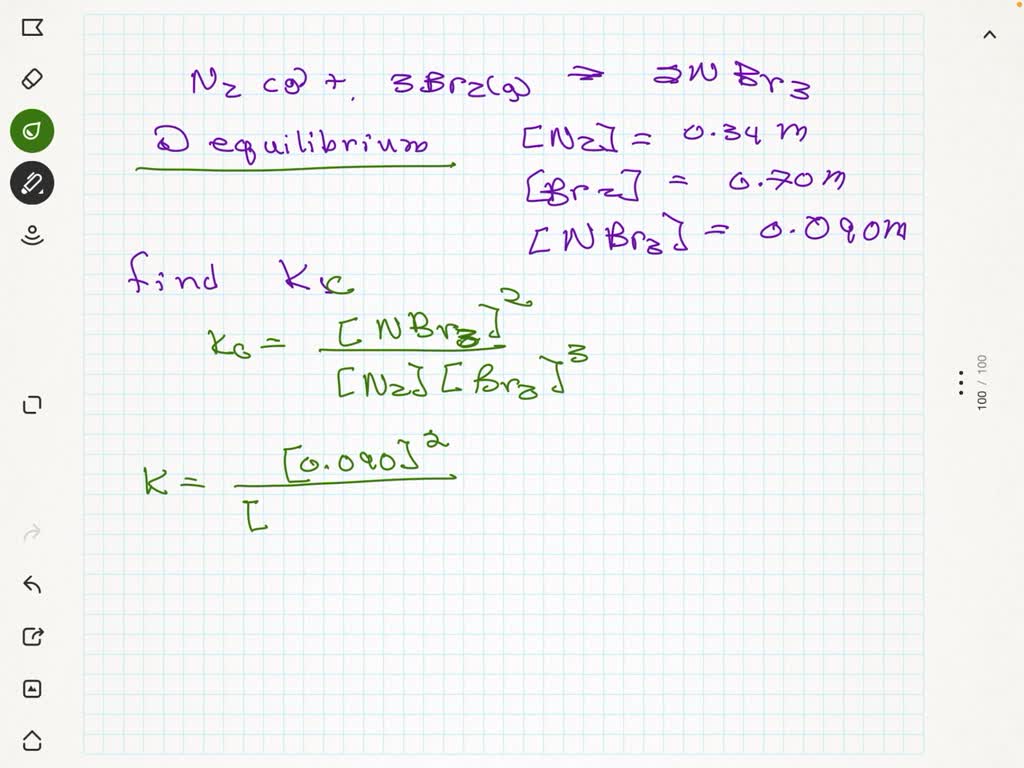 N2 (g) + 3Br2(g) ⇒ 2NBr3
@ equilibrium
[N2] = 0.34 m
[Br2] = 0.70m
[NBr3] = 0.090m
find Kc
Kc = [NBr3]^2 / [N2][Br2]^3
K = [0.090]^2 / [
100 / 100